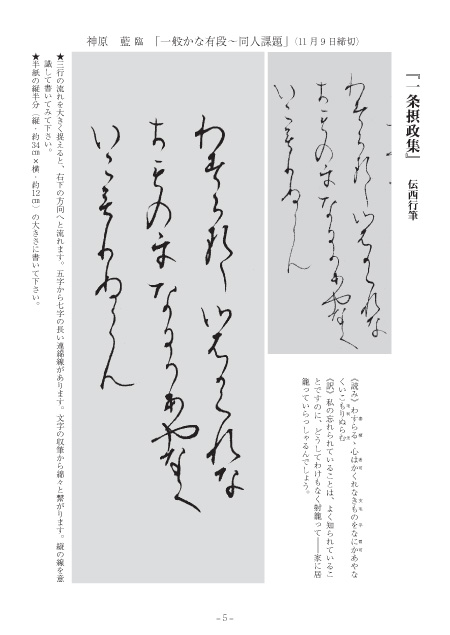 神原 藍 臨 「一般かな有段～同人課題」(11月9日締切)
『一条摂政集』 伝西行筆
わすらるゝ心はかくれな
きものをなにかあやなく
いこもりぬらむ
《読み》わすらるゝ心はかくれなきものをなにかあやな
くいこもりぬらむ
《訳》私の忘れられていることは、よく知られているこ
とですのに、どうしてわけもなく射籠って――家に居
籠っていらっしゃるんでしょう。
わすらるゝ心はかくれな
きものをなにかあやなく
いこもりぬらむ
★三行の流れを大きく捉えると、右下の方向へと流れます。五字から七字の長い連綿線があります。文字の収筆から綿々と繋がります。縦の線を意
識して書いてみて下さい。
★半紙の縦半分（縦・約34㎝×横・約12㎝）の大きさに書いて下さい。
~5~